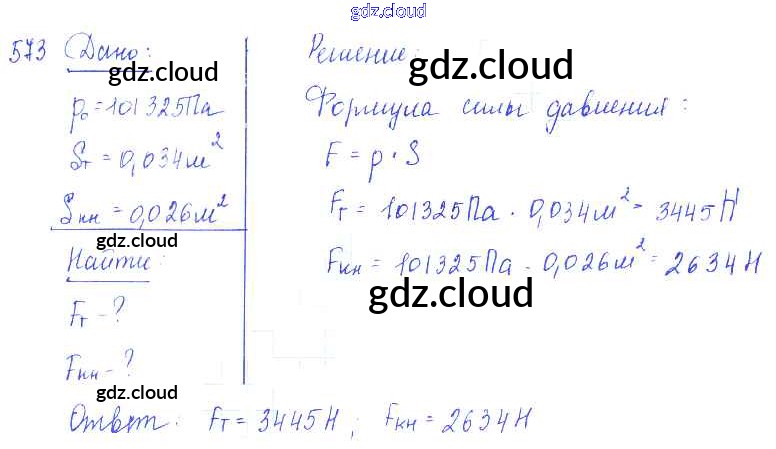 gdz.cloud
573 Дано:
gdz.cloud
p₀ = 101325 Па
Sт = 0,034 м²
Sкн = 0,026 м²
gdz.cloud
Найти:
Fт - ?
Fкн - ?
gdz.cloud
Решение:
gdz.cloud
Формула силы давления:
F = p · S
Fт = 101325 Па · 0,034 м² = 3445 Н
Fкн = 101325 Па · 0,026 м² = 2634 Н
gdz.cloud
Ответ: Fт = 3445 Н; Fкн = 2634 Н
gdz.cloud